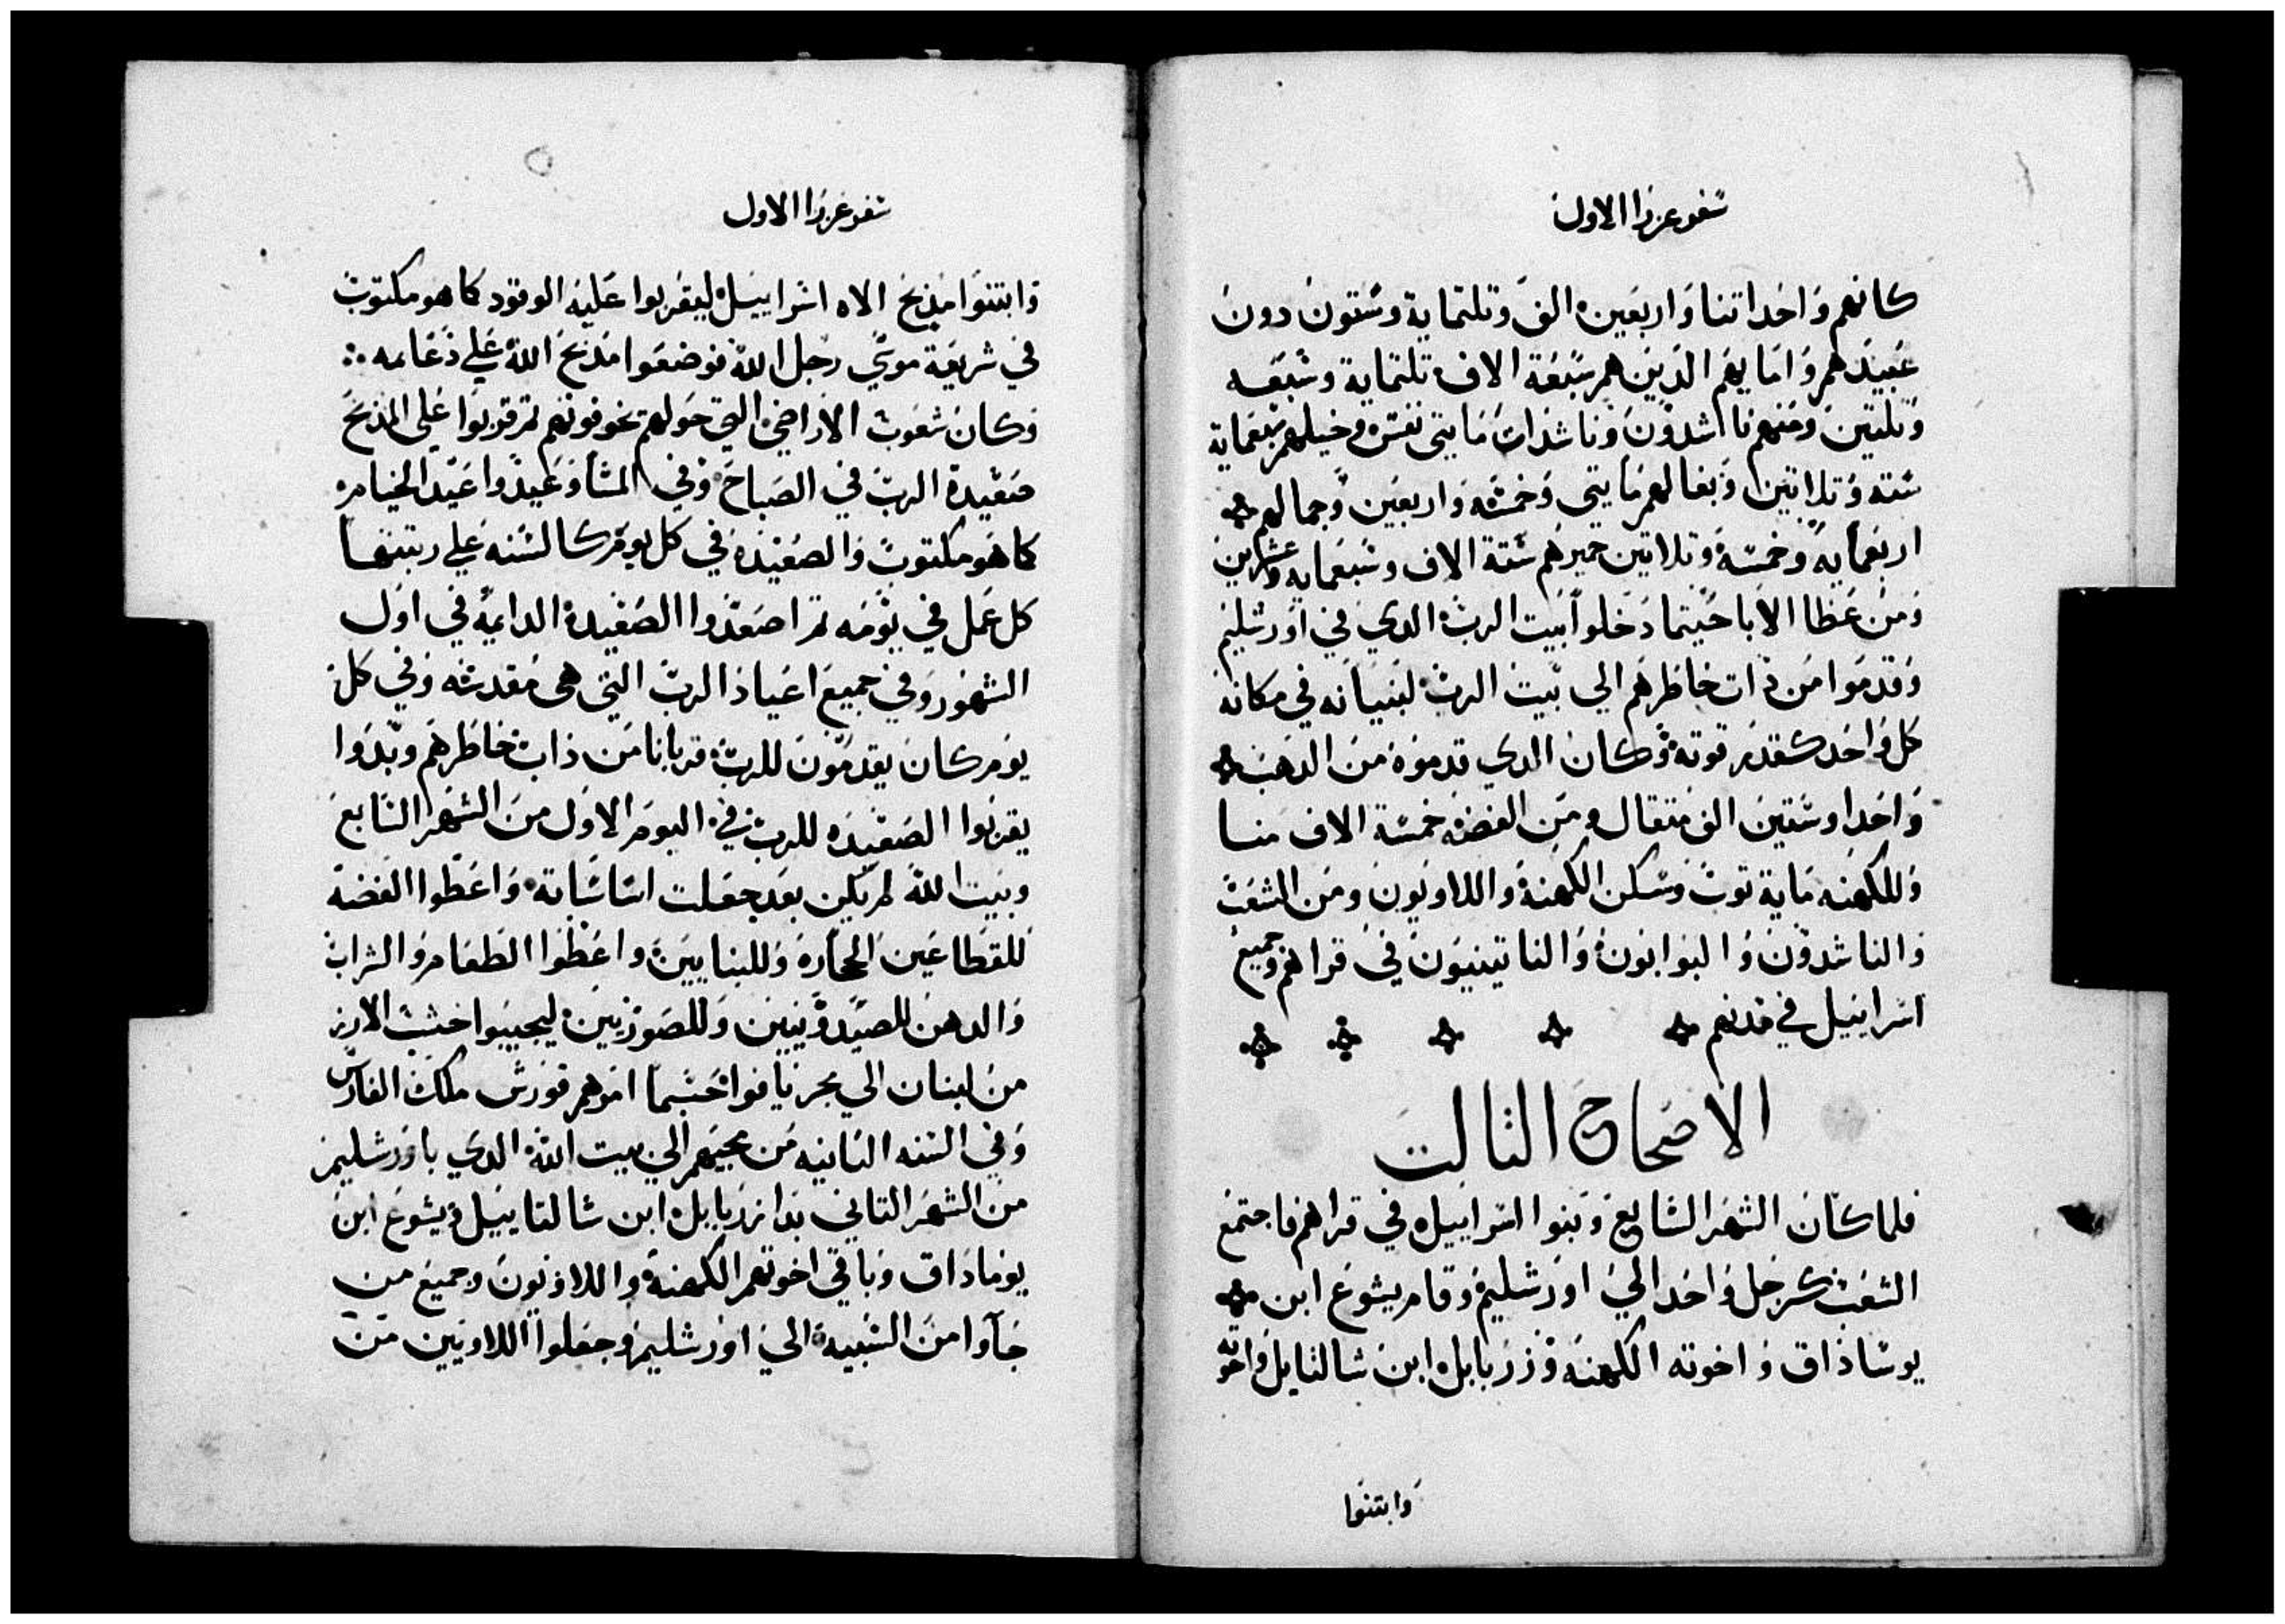 سفر عزرا الاول
كانهم واحدا تنا واربعين الف وتلتماية وستون دون
عبيدهم وامايهم الدين هم سبعة الاف تلتماية وسبعه
وتلتين ومنهم ناشدون وناشدات مايتى نفس وخيلهم سبعماية
سته وتلاتين وبغالهم مايتى وخمسه واربعين وجمالهم
اربعمايه وخمسة وتلاتين حميرهم ستة الاف وسبعمايه وعشرين
ومن عظا الابا حيتما دخلوا بيت الرب الدي في اورشليم
وقدموا من ذات خاطرهم الي بيت الرب لبنيانه في مكانه
كل واحد كقدر قوته وكان الدي قدموه من الدهب
واحدا وستين الف متقال ومن الفضه خمسة الاف منا
وللكهنه ماية توب وسكن الكهنة واللاويون ومن الشعب
والناشدون والبوابون والناتينيون في قراهم وجميع
اسراييل في مدنهم
الاصحاح التالت
فلما كان الشهر السابع وبنوا اسراييل في قراهم فاجتمع
الشعب كرجل واحد الي اورشليم وقام يشوع ابن
يوساداق واخوته الكهنه وزربابل ابن شالتايل واخوته
وابتنوا
سفر عزرا الاول
وابتنوا مذبح الاه اسراييل ليقربوا عليه الوقود كما هو مكتوب
في شريعة موسي رجل الله فوضعوا مذبح الله علي دعايمه
وكان شعوب الاراضي التي حولهم تخوفونهم تم قربوا علي المذبح
صعيدة الرب في الصباح وفي المسا وعيدوا عيد الخيام
كما هو مكتوب والصعيدة في كل يوم كالسنه علي رتبتها
كل عمل في يومه تم اصعدوا الصعيدة الدايمة في اول
الشهور وفي جميع اعياد الرب التي هى مقدسه وفي كل
يوم كان يقدمون للرب قربانا من ذات خاطرهم وبدوا
يقربوا الصعيده للرب في اليوم الاول من الشهر السابع
وبيت الله لم يكن بعد جعلت اساساته واعطوا الفضة
للقطاعين الحجاره وللبنايين واعطوا الطعام والشراب
والدهن للصيدونيين وللصوريين ليجيبوا خشب الارز
من لبنان الي بحر يافوا حسبما امرهم قورش ملك الفارس
وفي السنه التانيه من مجيهم الي بيت الله الدي باورشليم
من الشهر التاني بدا زربابل ابن شالتاييل ويشوع ابن
يوماداق وباقي اخوتهم الكهنة واللاويون وجميع من
جآوا من السبيه الي اورشليم وجعلوا اللاويين من